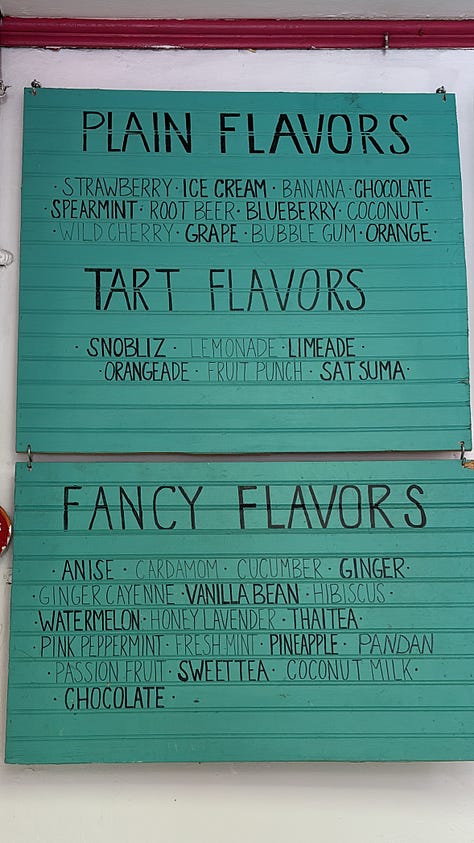 PLAIN FLAVORS
· STRAWBERRY · ICE CREAM · BANANA · CHOCOLATE
SPEARMINT · ROOT BEER · BLUEBERRY · COCONUT ·
· WILD CHERRY · GRAPE · BUBBLE GUM · ORANGE ·
TART FLAVORS
· SNOBLIZ · LEMONADE · LIMEADE ·
· ORANGEADE · FRUIT PUNCH · SATSUMA ·
FANCY FLAVORS
· ANISE · CARDAMOM · CUCUMBER · GINGER ·
· GINGER CAYENNE · VANILLA BEAN · HIBISCUS ·
WATERMELON · HONEY LAVENDER · THAI TEA ·
· PINK PEPPERMINT · FRESH MINT · PINEAPPLE · PANDAN
· PASSION FRUIT · SWEET TEA · COCONUT MILK ·
· CHOCOLATE ·